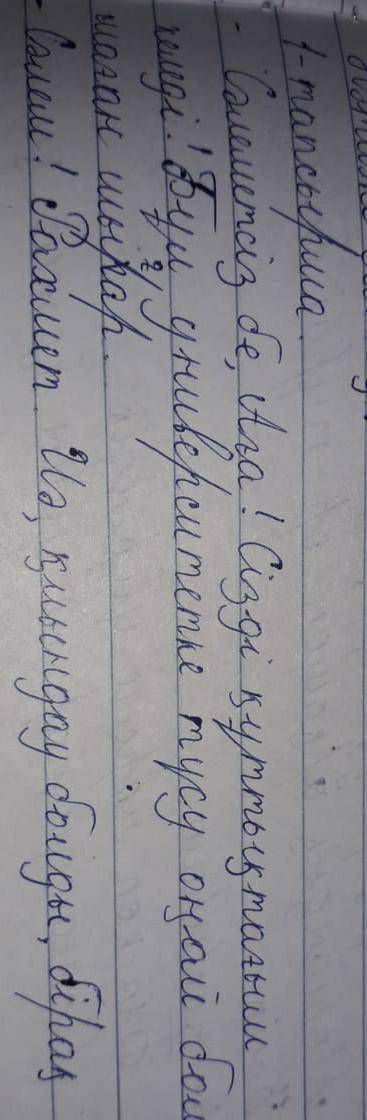 1-тапсырма.
- Сәлеметсіз бе, Аға! Сізді құттықтағым
келеді! Бұл университетке түсу оңай бол
маған шығар.
- Сәлем! Рахмет. Иә, қиындау болды, бірақ